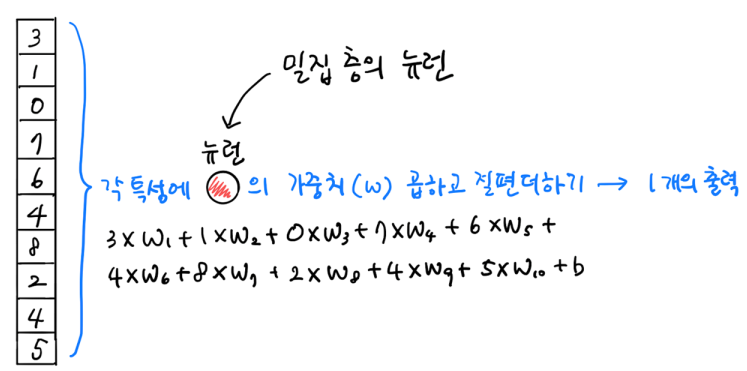 3
1
0
7
6
4
8
2
4
5
밀집 층의 뉴런
뉴런
각 특성에 의 가중치(w) 곱하고 절편더하기 → 1개의 출력
3×w₁+1×w₂+0×w₃+7×w₄+6×w₅+
4×w₆+8×w₇+2×w₈+4×w₉+5×w₁₀+b